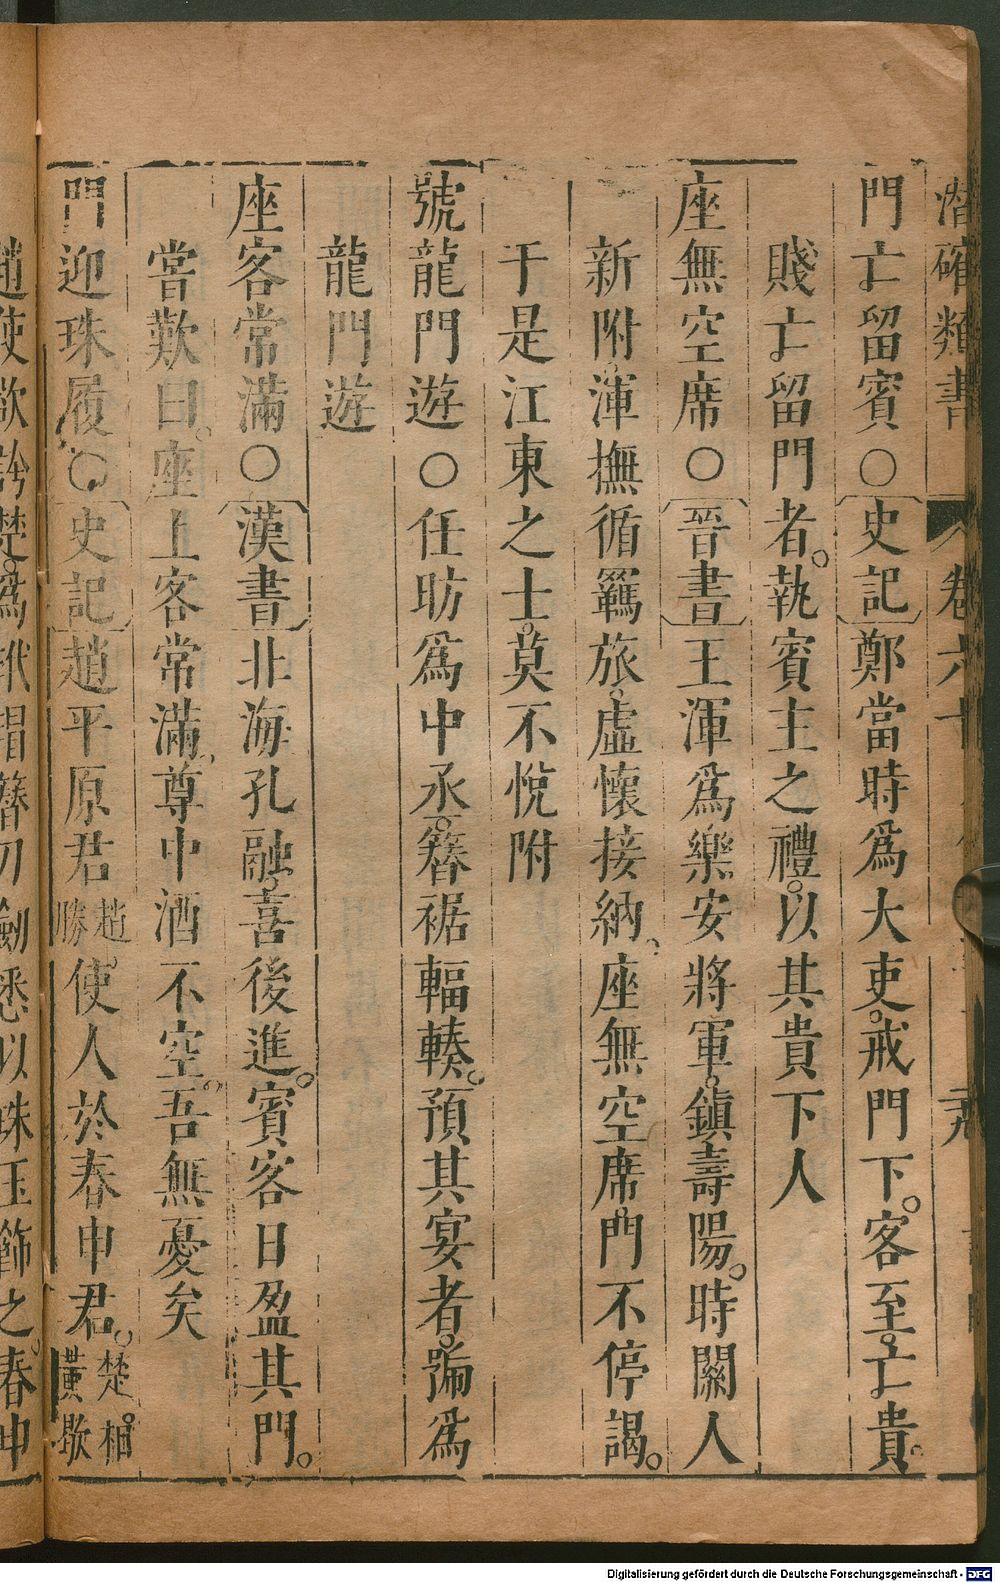 潜確類書
卷六十
門亡留賓○史記鄭當時爲大吏戒門下客至亡貴
賤亡留門者執賓主之禮以其貴下人
座無空席○晉書王渾爲樂安將軍鎮壽陽時關人
新附渾撫循羈旅虛懷接納座無空席門不停謁
于是江東之士莫不悅附
號龍門遊○任昉爲中丞簪裾輻輳預其宴者號爲
龍門遊
座客常滿○漢書北海孔融喜後進賓客日盈其門
嘗歎曰座上客常滿尊中酒不空吾無憂矣
門迎珠履○史記趙平原君趙勝使人於春申君楚相黃歇
趙使欲誇楚爲玳瑁簪刀劍悉以珠玉飾之春申
Digitalisierung gefördert durch die Deutsche Forschungsgemeinschaft - DFG